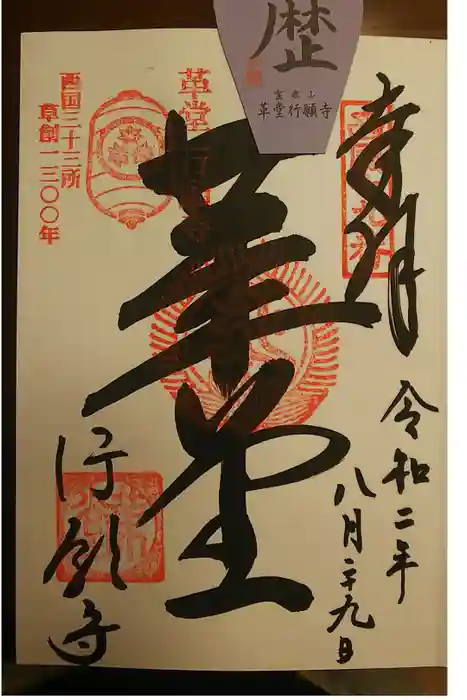 歴
霊麀山
革堂行願寺
奉拝
令和二年
八月二十九日
革堂
革堂
西国三十三所
草創一三〇〇年
行願寺